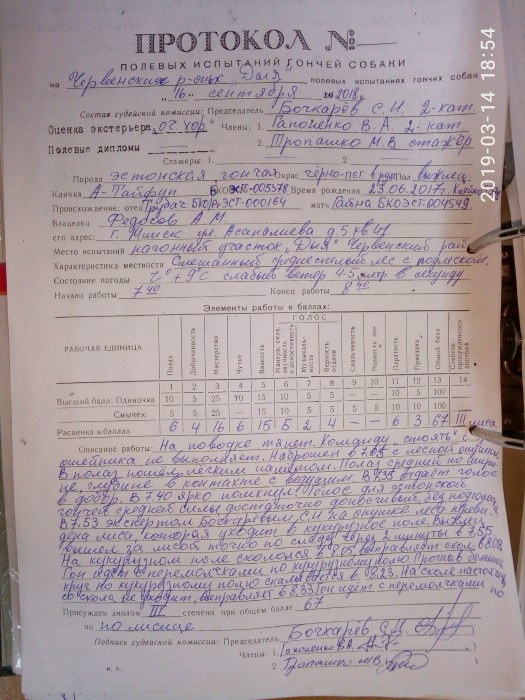 ПРОТОКОЛ №
ПОЛЕВЫХ ИСПЫТАНИЙ ГОНЧЕЙ СОБАКИ
на Червенских р-ских "Дыя" полевых испытаниях гончих собак
"16" сентября 2018 г.
Состав судейской комиссии: Председатель Бочкарёв С.И. 2-кат.
Оценка экстерьера "оч. хор" Члены: 1. Гапоненко В.А. 2-кат.
Полевые дипломы 2. Тропашко М.В стажёр
Стажеры: 1. 2.
Порода эстонская гончая Окрас черно-пег в рум Пол выжлец
Кличка А-Тайфун БКОЭСТ-005578 Время рождения 23.06.2017г.
Происхождение: отец БКОЭСТ-000164 мать БКОЭСТ-004549
Владелец Федосов А.М.
его адрес: г. Минск ул. Асаналиева д.5 кв 47
Место испытаний нагонный участок "Дыя" Червенский район
Характеристика местности Смешанный среднеспелый лес с подлеском.
Состояние погоды t°+9°С слабый ветер 4-5 метр в секунду
Начало работы 7 40 Конец работы 8 40
Элементы работы в баллах:
РАБОЧАЯ ЕДИНИЦА Полаз Добычливость Мастерство Чутье Вязкость ГОЛОС Музыкальность Верность отдачи Свальчивость Ровность ног Паратость Приездка Общий балл Степень присужденного диплома
1 2 3 4 5 6 7 8 9 10 11 12 13 14
Высший балл: Одиночка 5 5 25 10 15 10 5 5 — — 10 5 100
Смычек 5 5 25 — 15 10 5 5 5 5 10 5 100
Расценка в баллах 6 4 16 6 15 5 2 4 — — 6 3 67 III лиса
Описание работы: На поводке тянет. Команду "стоять" без
ошейника не выполняет. Наброшен в 7.05 с лесной опушки.
В полаз пошёл лёгким наметом. Полаз средний по ширине
и глубине в контакте с ведущим. В 7.35 отдаёт голос
в добор. В 7.40 ярко помкнул. Голос для эстонской
гончей средней силы, достаточно доносчивый, без
7.53 экспертом Бочкарёвым С.И на опушке леса
лиса, которая уходит в кукурузное поле. Выжлец
вышел за лисой точно по следу через 2 минуты в 7.55.
На кукурузном поле скололся в 8.05, выправляет скол в 8.08.
Гон идёт с перемолчками по кукурузному полю.
круг по кукурузному полю скалывается в 8.23. На сколе настойчив
со скола не уходит, выправляет в 8.33 Гон идёт с перемолчками по
Присужден диплом III степени при общем балле 67
по по лисице
Подпись судейской комиссии: Председатель Бочкарёв С.И.
Члены: 1. Гапоненко В.А.
2. Тропашко М.В
м. п.
2019-03-14 18:54